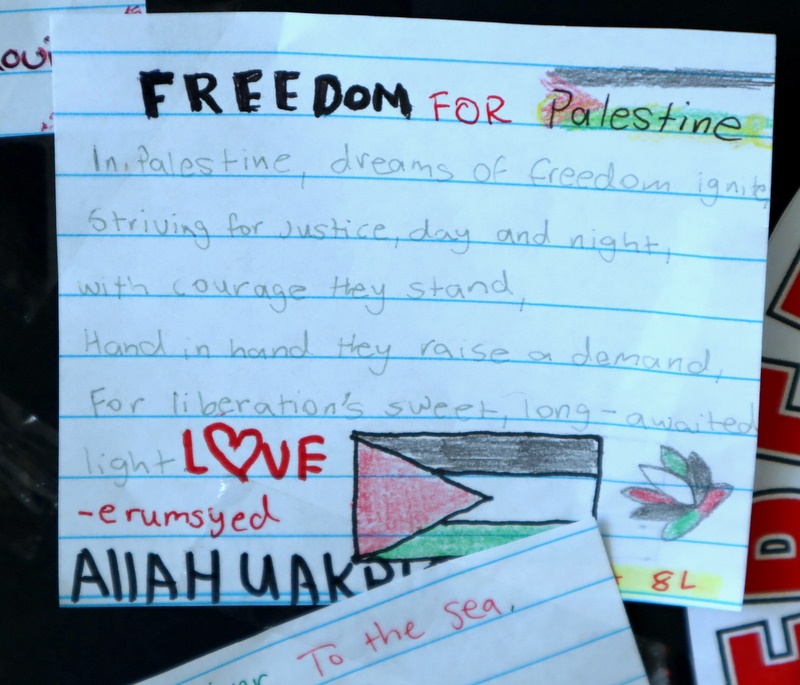 FREEDOM FOR Palestine
In Palestine, dreams of freedom ignite,
Striving for justice, day and night,
with courage they stand,
Hand in hand they raise a demand,
For liberation's sweet, long-awaited
light LOVE
-erumsyed
AllAH UAKB
8L
To the sea.